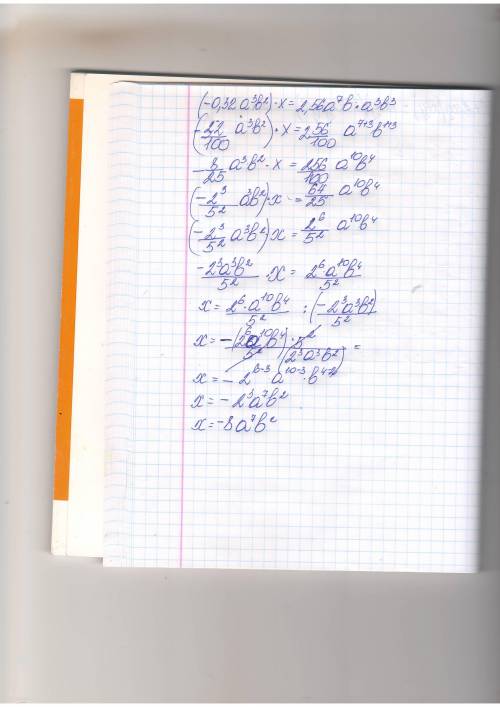 (-0,32a³b²)·x=2,56a⁷b·a³b³
(-32/100 a³b²)·x=2 56/100 a⁷⁺³b¹⁺³
8/25 a³b²·x=256/100 a¹⁰b⁴
(-2³/5² a³b²)·x=64/25 a¹⁰b⁴
(-2³/5² a³b²)x=2⁶/5² a¹⁰b⁴
-2³a³b²/5² ·x=2⁶a¹⁰b⁴/5²
x=2⁶·a¹⁰b⁴/5² :(-2³a³b²/5²)
x=-(2⁶a¹⁰b⁴)·5²/5²(2³a³b²)=
x=-2⁶⁻³a¹⁰⁻³·b⁴⁻²
x=-2³a⁷b²
x=-8a⁷b²